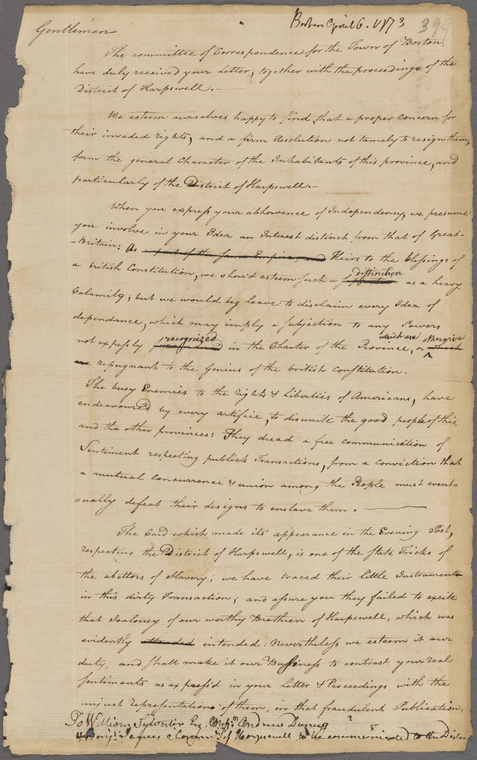 Boston April 6. 1773
399
Gentlemen
The committee of Correspondence for the Town of Boston,
have duly received your Letter, together with the proceedings of the
District of Harpswell.
We esteem ourselves happy to find, that a proper concern for
their invaded rights, and a firm Resolution not tamely to resign them,
form the general Character of the Inhabitants of this province, and
particularly of the District of Harpswell
When you express your abhorrence of Independency, we presume
you involve in your Idea an Interest distinct from that of Great-
-Britain: As a part of the same Empire, and Heirs to the blessings of
a british Constitution, we should esteem such a distinction as a heavy
Calamity; but we would beg leave to disclaim every Idea of
dependance, which may imply a subjection to any Powers
not expressly recognized in the Charter of the Province, or which are
repugnant to the Genius of the british Constitution.
The busy Enemies to the rights & Liberties of Americans, have
endeavoured by every artifice, to disunite the good people of this
and the other provinces: They dread a free communication of
Sentiment respecting publick Transactions, from a conviction that
a mutual concurrence & union among the People must event-
-ually defeat their designs to enslave them.
The Card which made its' appearance in the Evening Post,
respecting the District of Harpswell, is one of the State Tricks of
the abettors of Slavery; we have traced their little Instruments
in this dirty Transaction; and assure you they failed to excite
that Jealousy of our worthy Brethren of Harpswell, which was
evidently intended: Nevertheless we esteem it our
duty, and shall make it our Business to contrast your real
sentiments as express'd in your Letter & Proceedings with the
unjust representations of them, in that fraudulent Publication.
To William Sylvester Esq. Andrew Dunning
of Harpswell to be communicated to the District